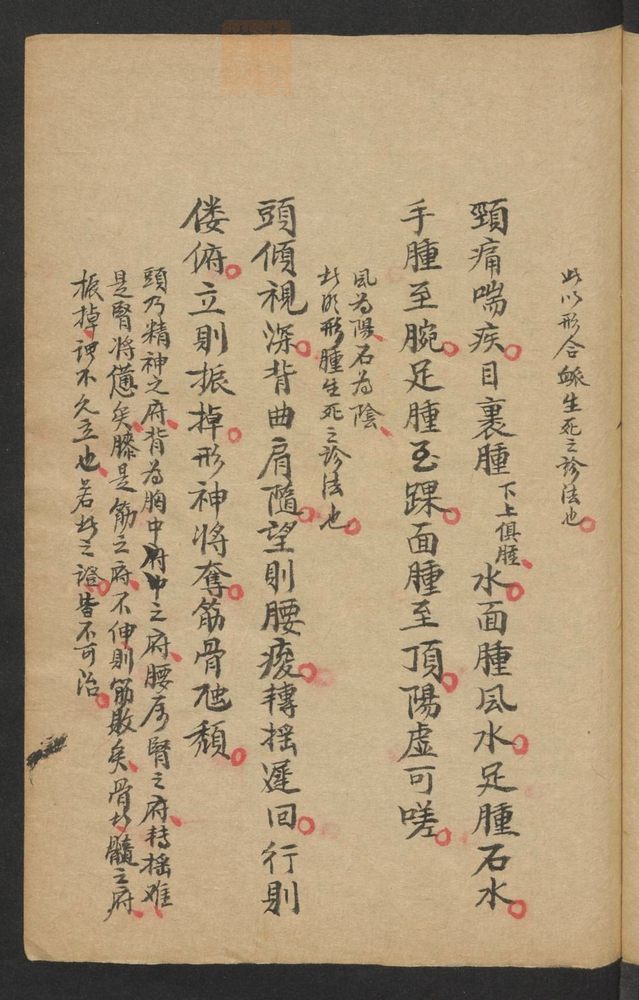 此以形合脈生死之診法也
頸痛喘疾目裏腫下上俱腫水面腫风水足腫石水
手腫至腕足腫至踝面腫至頂陽虛可嗟
风為陽石為陰
此明形腫生死之診法也
頭傾視深背曲肩隨望則腰痠轉摇遲回行則
偻俯立則振掉形神將奪筋骨虺頹
頭乃精神之府背為胸中府中之府腰為腎之府转摇难
是腎將憊矣膝是筋之府不伸則筋敗矣骨此髓之府
振掉理不久立也若此之證皆不可治